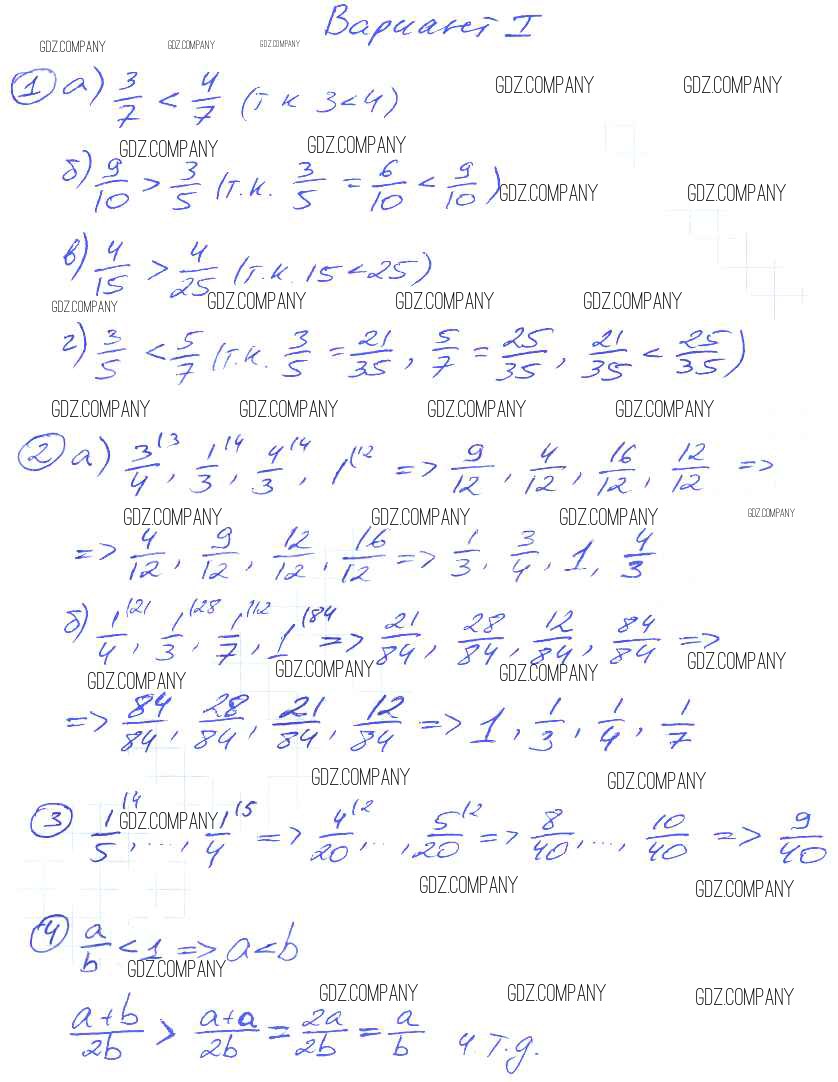 Вариант I
GDZ.COMPANY GDZ.COMPANY GDZ.COMPANY
GDZ.COMPANY GDZ.COMPANY
① а) 3/7 < 4/7 (т к 3<4)
GDZ.COMPANY GDZ.COMPANY
б) 9/10 > 3/5 (т.к. 3/5 = 6/10 < 9/10)
GDZ.COMPANY GDZ.COMPANY
в) 4/15 > 4/25 (т.к. 15<25)
GDZ.COMPANY GDZ.COMPANY GDZ.COMPANY GDZ.COMPANY
г) 3/5 < 5/7 (т.к. 3/5 = 21/35, 5/7 = 25/35, 21/35 < 25/35)
GDZ.COMPANY GDZ.COMPANY GDZ.COMPANY GDZ.COMPANY
② а) 3/4 (3, 1/3 (4, 4/3 (4, 1 (12 => 9/12, 4/12, 16/12, 12/12 =>
GDZ.COMPANY GDZ.COMPANY GDZ.COMPANY GDZ.COMPANY
=> 4/12, 9/12, 12/12, 16/12 => 1/3, 3/4, 1, 4/3
б) 1/4 (21, 1/3 (28, 1/7 (12, 1 (84 => 21/84, 28/84, 12/84, 84/84 =>
GDZ.COMPANY GDZ.COMPANY GDZ.COMPANY GDZ.COMPANY
=> 84/84, 28/84, 21/84, 12/84 => 1, 1/3, 1/4, 1/7
GDZ.COMPANY GDZ.COMPANY
③ 1/5 (4, ..., 1/4 (5 => 4/20 (2, ..., 5/20 (2 => 8/40, ..., 10/40 => 9/40
GDZ.COMPANY
GDZ.COMPANY GDZ.COMPANY
④ a/b < 1 => a<b
GDZ.COMPANY
GDZ.COMPANY GDZ.COMPANY GDZ.COMPANY
(a+b)/2b > (a+a)/2b = 2a/2b = a/b ч.т.д.